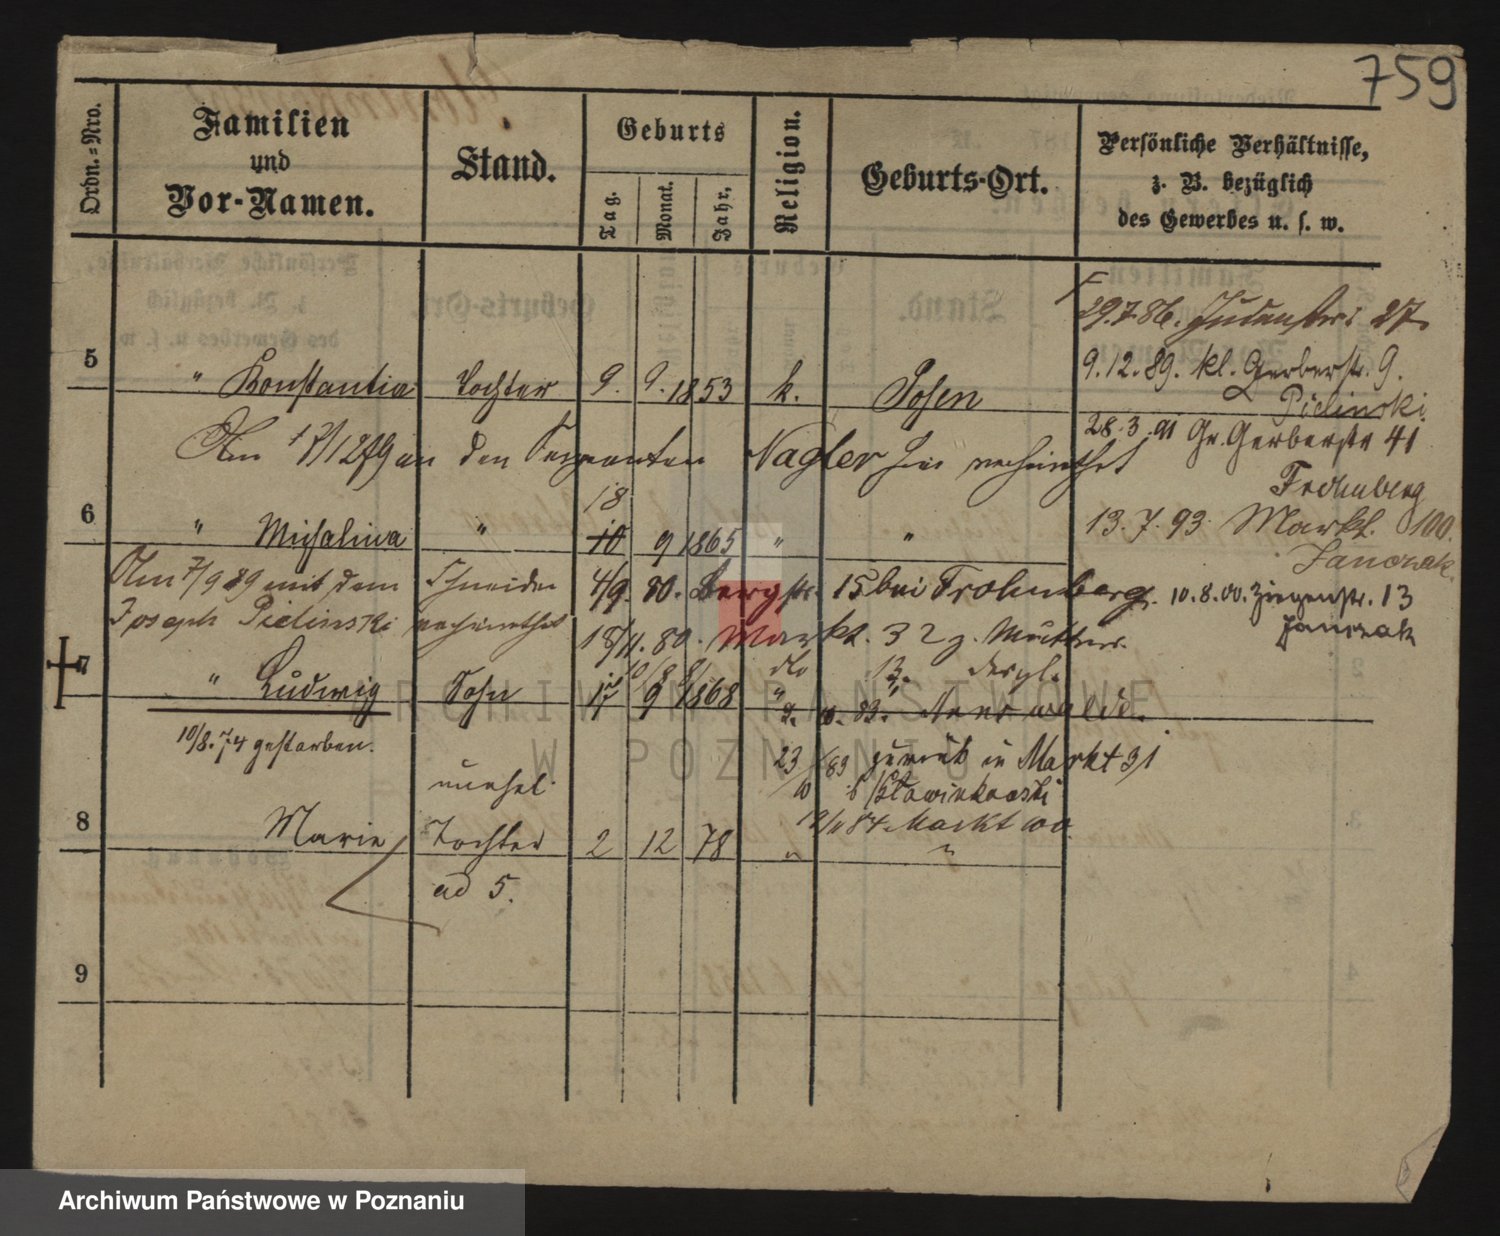 759
Ordn.-Nro.
Familien
und
Vor-Namen.
Stand.
Geburts
Tag.
Monat.
Jahr,
Religion.
Geburts-Ort.
Persönliche Verhältnisse,
z. B. bezüglich
des Gewerbes u. s. w.
29.7.86. Judenstr. 27
5 " Konstantia Tochter 9. 9. 1853 k. Posen
9.12.89. kl. Gerberstr. 9.
Pielinski
Am 17/12 79 an den Sergeanten Nagler hier verheirathet
28.3.91 Gr. Gerberstr 41
Frohnberg
18
6 " Michalina " 10 9 1865 " "
13.7.93. Markt. 100.
Janczak.
Am 7/9 89 mit dem Schneider
Joseph Pielinski verheirathet
4/9. 80. Bergstr. 15 bei Frohnberg.
10.8.00. Ziegenstr. 13
Janczak
18/11. 80. Markt. 32 z. Mutter.
7 " Ludwig Sohn 17 9 1868 "
10/8.74 gestorben.
23/10 83 zurück in Markt 31
b Slawinkowski
12/11 84 Markt 100.
unehel.
8 Marie Tochter 2 12 78 " "
ad 5.
9
ARCHIWUM PAŃSTWOWE
W POZNANIU
Archiwum Państwowe w Poznaniu